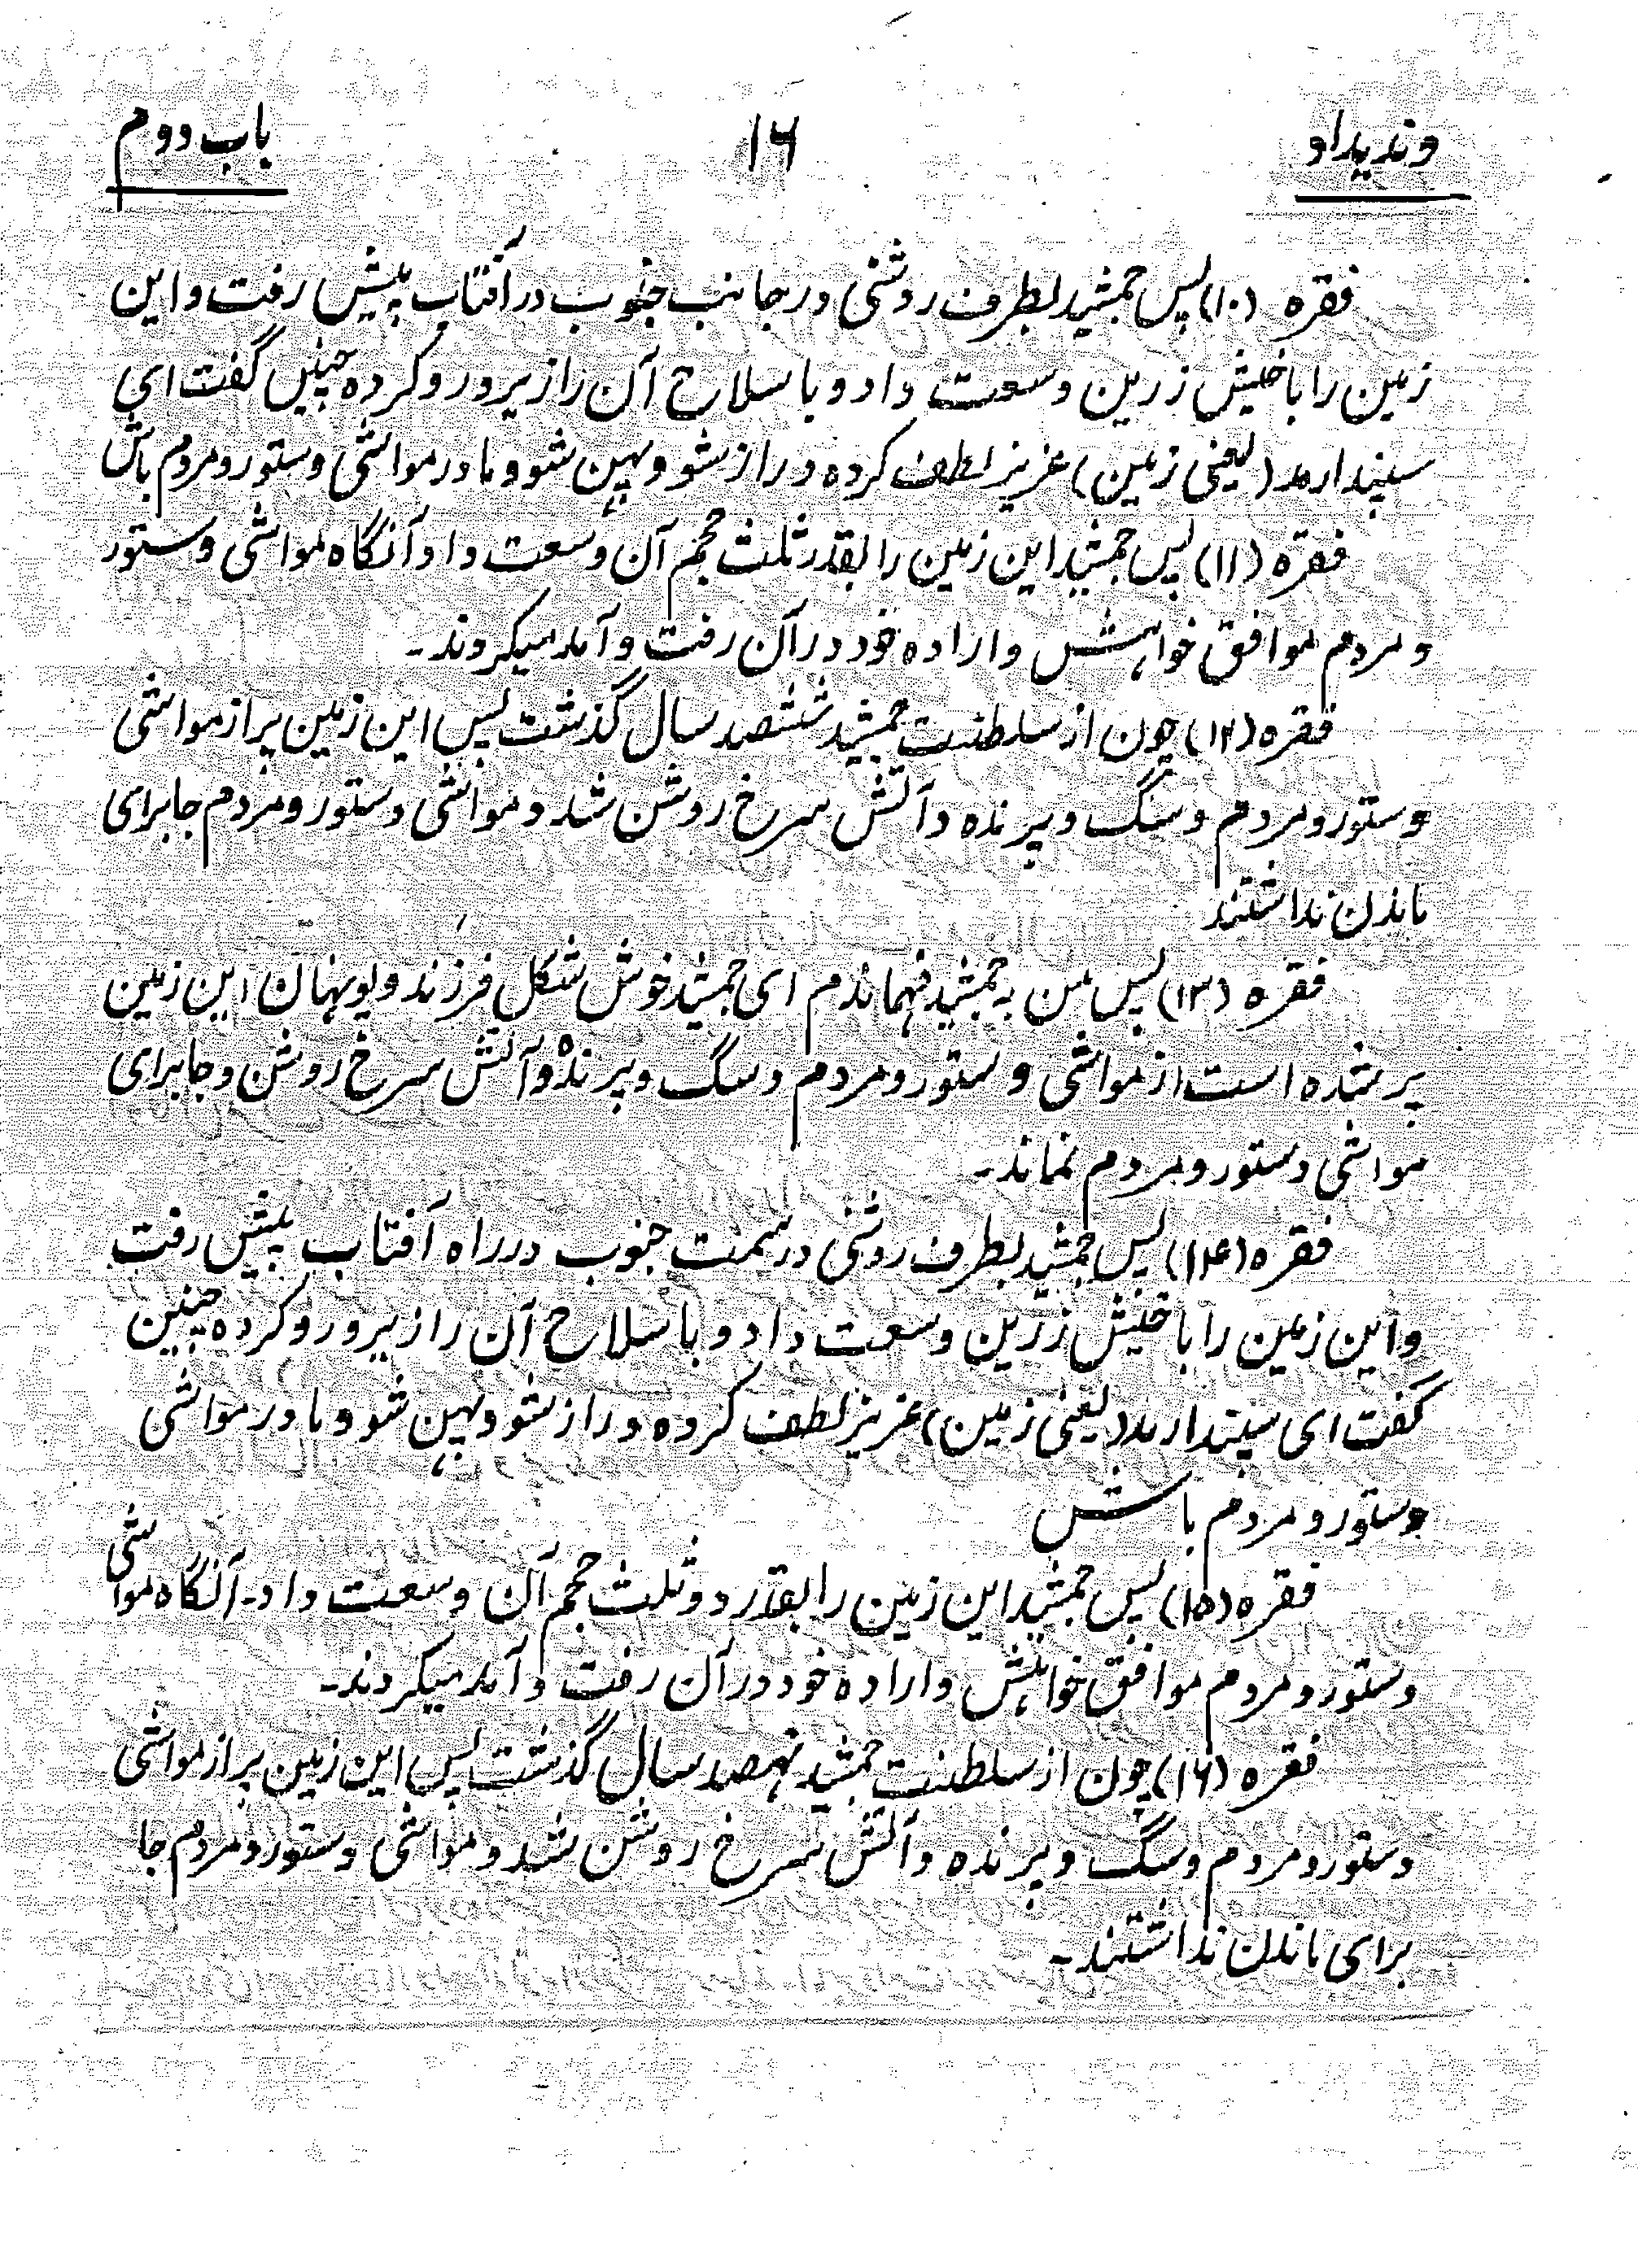 وندیداد ۱۶ باب دوم
فقره (۱۰) پس جمشید بطرف روشنی در جانب جنوب در آفتاب پیش رفت و این
زمین را با خیش زرین وسعت داد و با سلاح آن را زیر و رو کرده چنین گفت ای
سپندارمد (یعنی زمین) عزیز لطف کرده دراز شو و پهن شو و مادر مواشی و ستور و مردم باش
فقره (۱۱) پس جمشید این زمین را بقدر ثلث حجم آن وسعت داد و آنگاه مواشی و ستور
و مردم موافق خواهش و اراده خود در آن رفت و آمد میکردند ۔
فقره (۱۲) چون از سلطنت جمشید ششصد سال گذشت پس این زمین پر از مواشی
و ستور و مردم و سگ و پرنده و آتش سرخ روشن شد و مواشی و ستور و مردم جا برای
ماندن نداشتند
فقره (۱۳) پس من به جمشید فهماندم ای جمشید خوش شکل فرزند ویونهان این زمین
پر شده است از مواشی و ستور و مردم و سگ و پرنده و آتش سرخ روشن و جا برای
مواشی و ستور و مردم نماند ۔
فقره (۱۴) پس جمشید بطرف روشنی در سمت جنوب در راه آفتاب پیش رفت
و این زمین را با خیش زرین وسعت داد و با سلاح آن را زیر و رو کرده چنین
گفت ای سپندارمد (یعنی زمین) عزیز لطف کرده دراز شو و پهن شو و مادر مواشی
و ستور و مردم باش
فقره (۱۵) پس جمشید این زمین را بقدر دو ثلث حجم آن وسعت داد ۔ آنگاه مواشی
و ستور و مردم موافق خواهش و اراده خود در آن رفت و آمد میکردند ۔
فقره (۱۶) چون از سلطنت جمشید نهصد سال گذشت پس این زمین پر از مواشی
و ستور و مردم و سگ و پرنده و آتش سرخ روشن شد و مواشی و ستور و مردم جا
برای ماندن نداشتند ۔